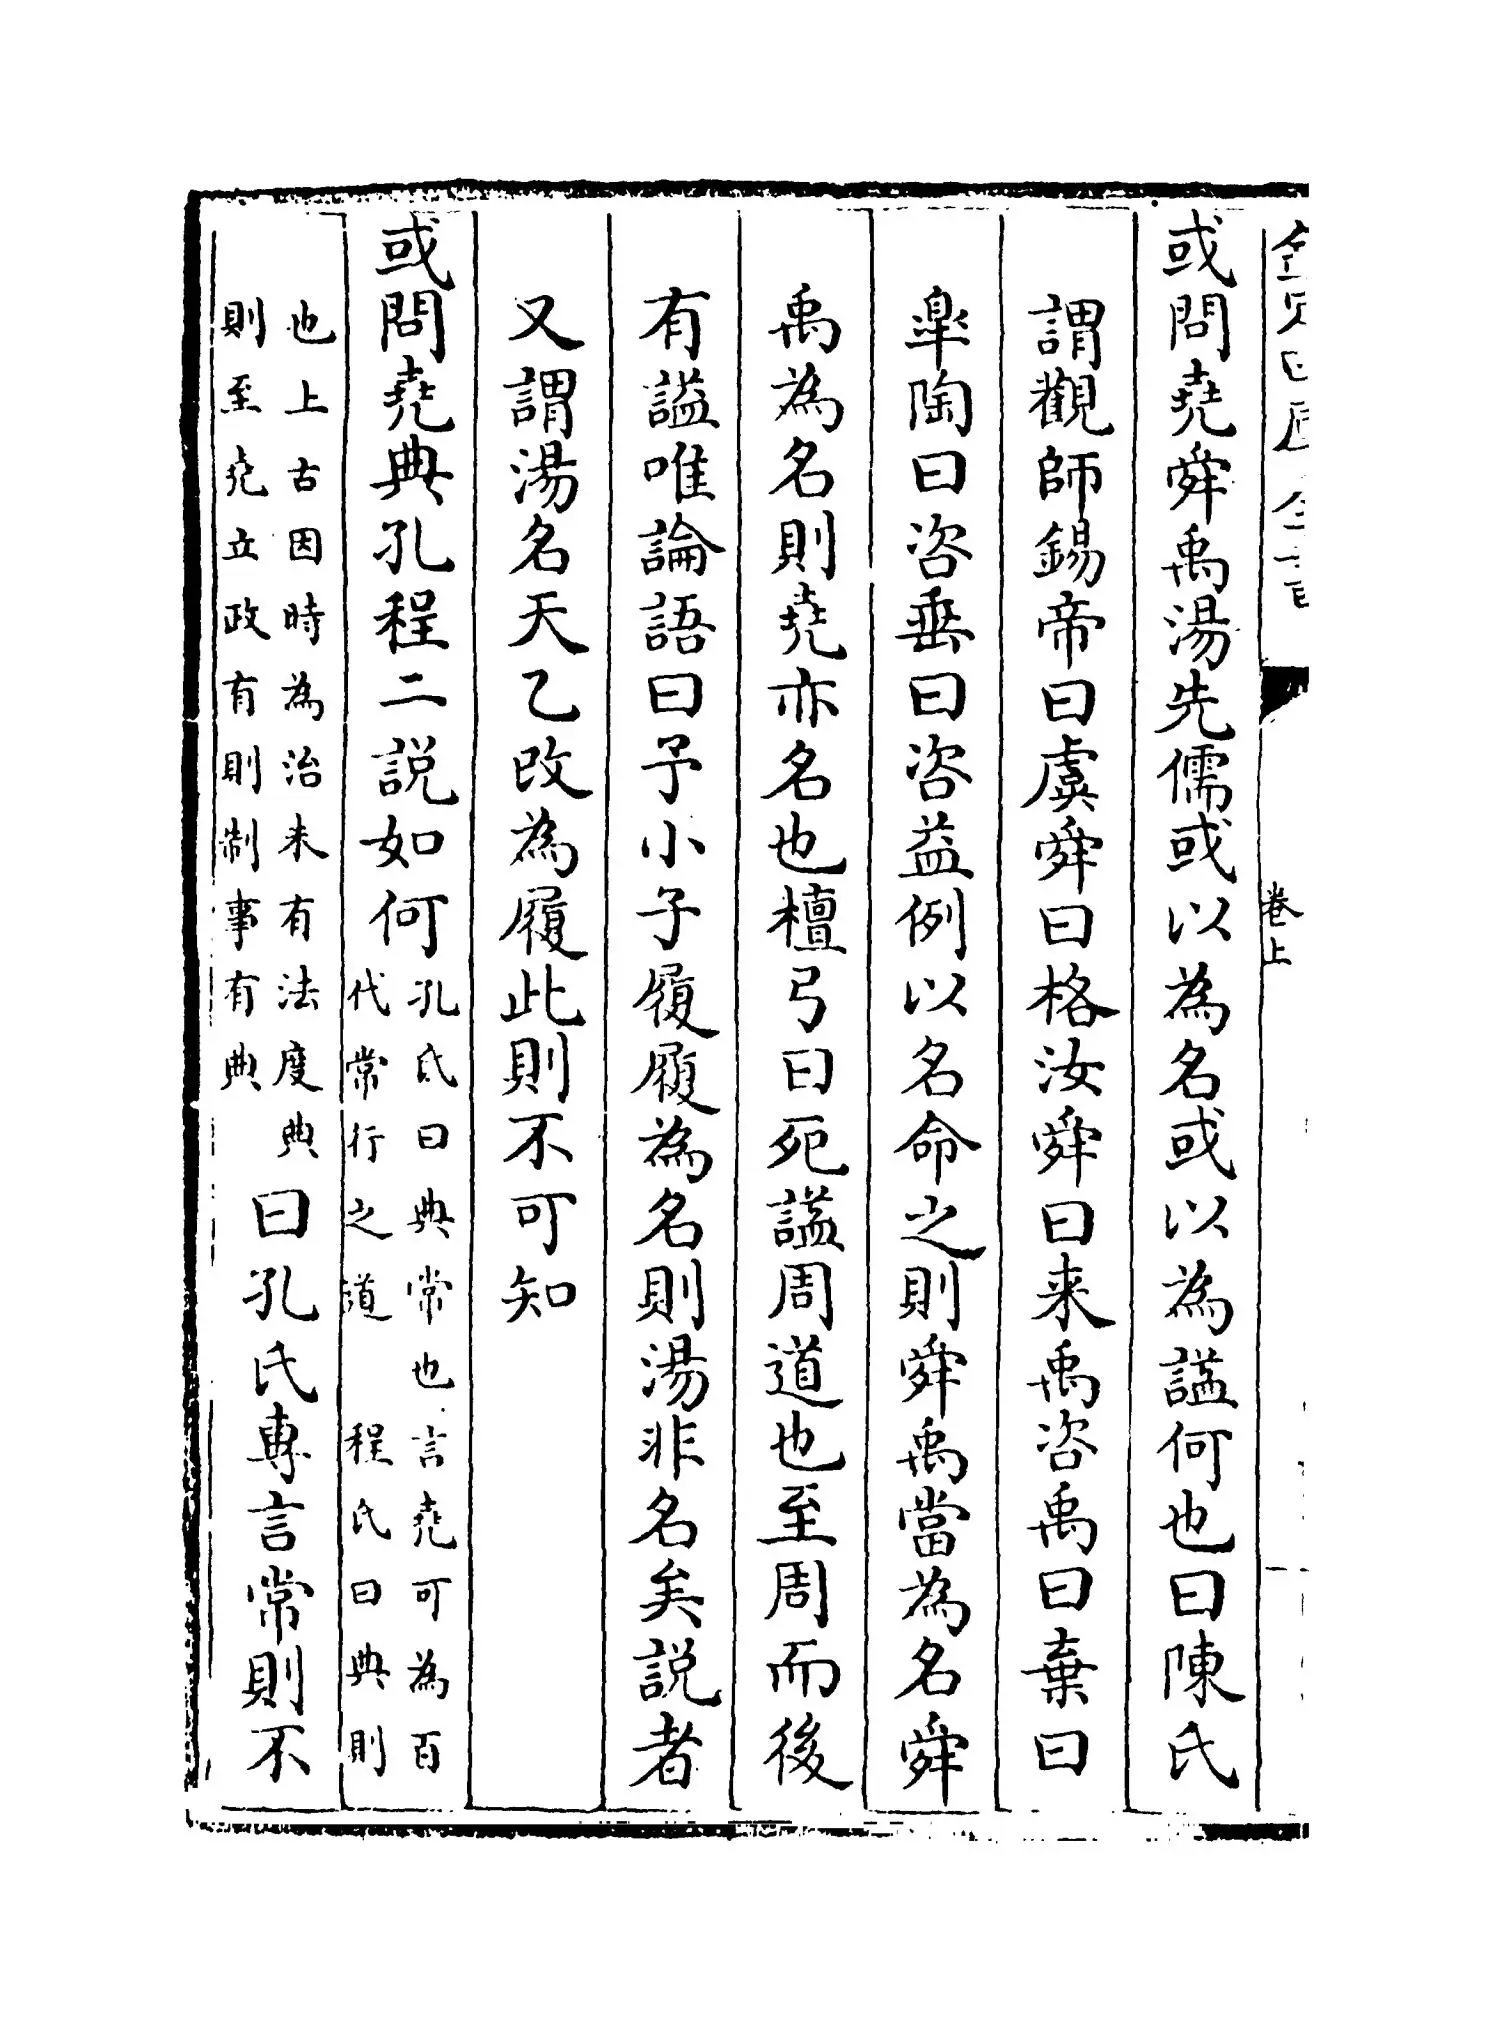 或問堯舜禹湯先儒或以為名或以為謚何也曰陳氏
謂觀師錫帝曰虞舜曰格汝舜曰来禹咨禹曰棄曰
皐陶曰咨垂曰咨益例以名命之則舜禹當為名舜
禹為名則堯亦名也檀弓曰死謚周道也至周而後
有謚唯論語曰予小子履履為名則湯非名矣説者
又謂湯名天乙改為履此則不可知
或問堯典孔程二説如何
孔氏曰典常也言堯可為百
代常行之道 程氏曰典則
也上古因時為治未有法度典
則至堯立政有則制事有典
曰孔氏專言常則不
卷上